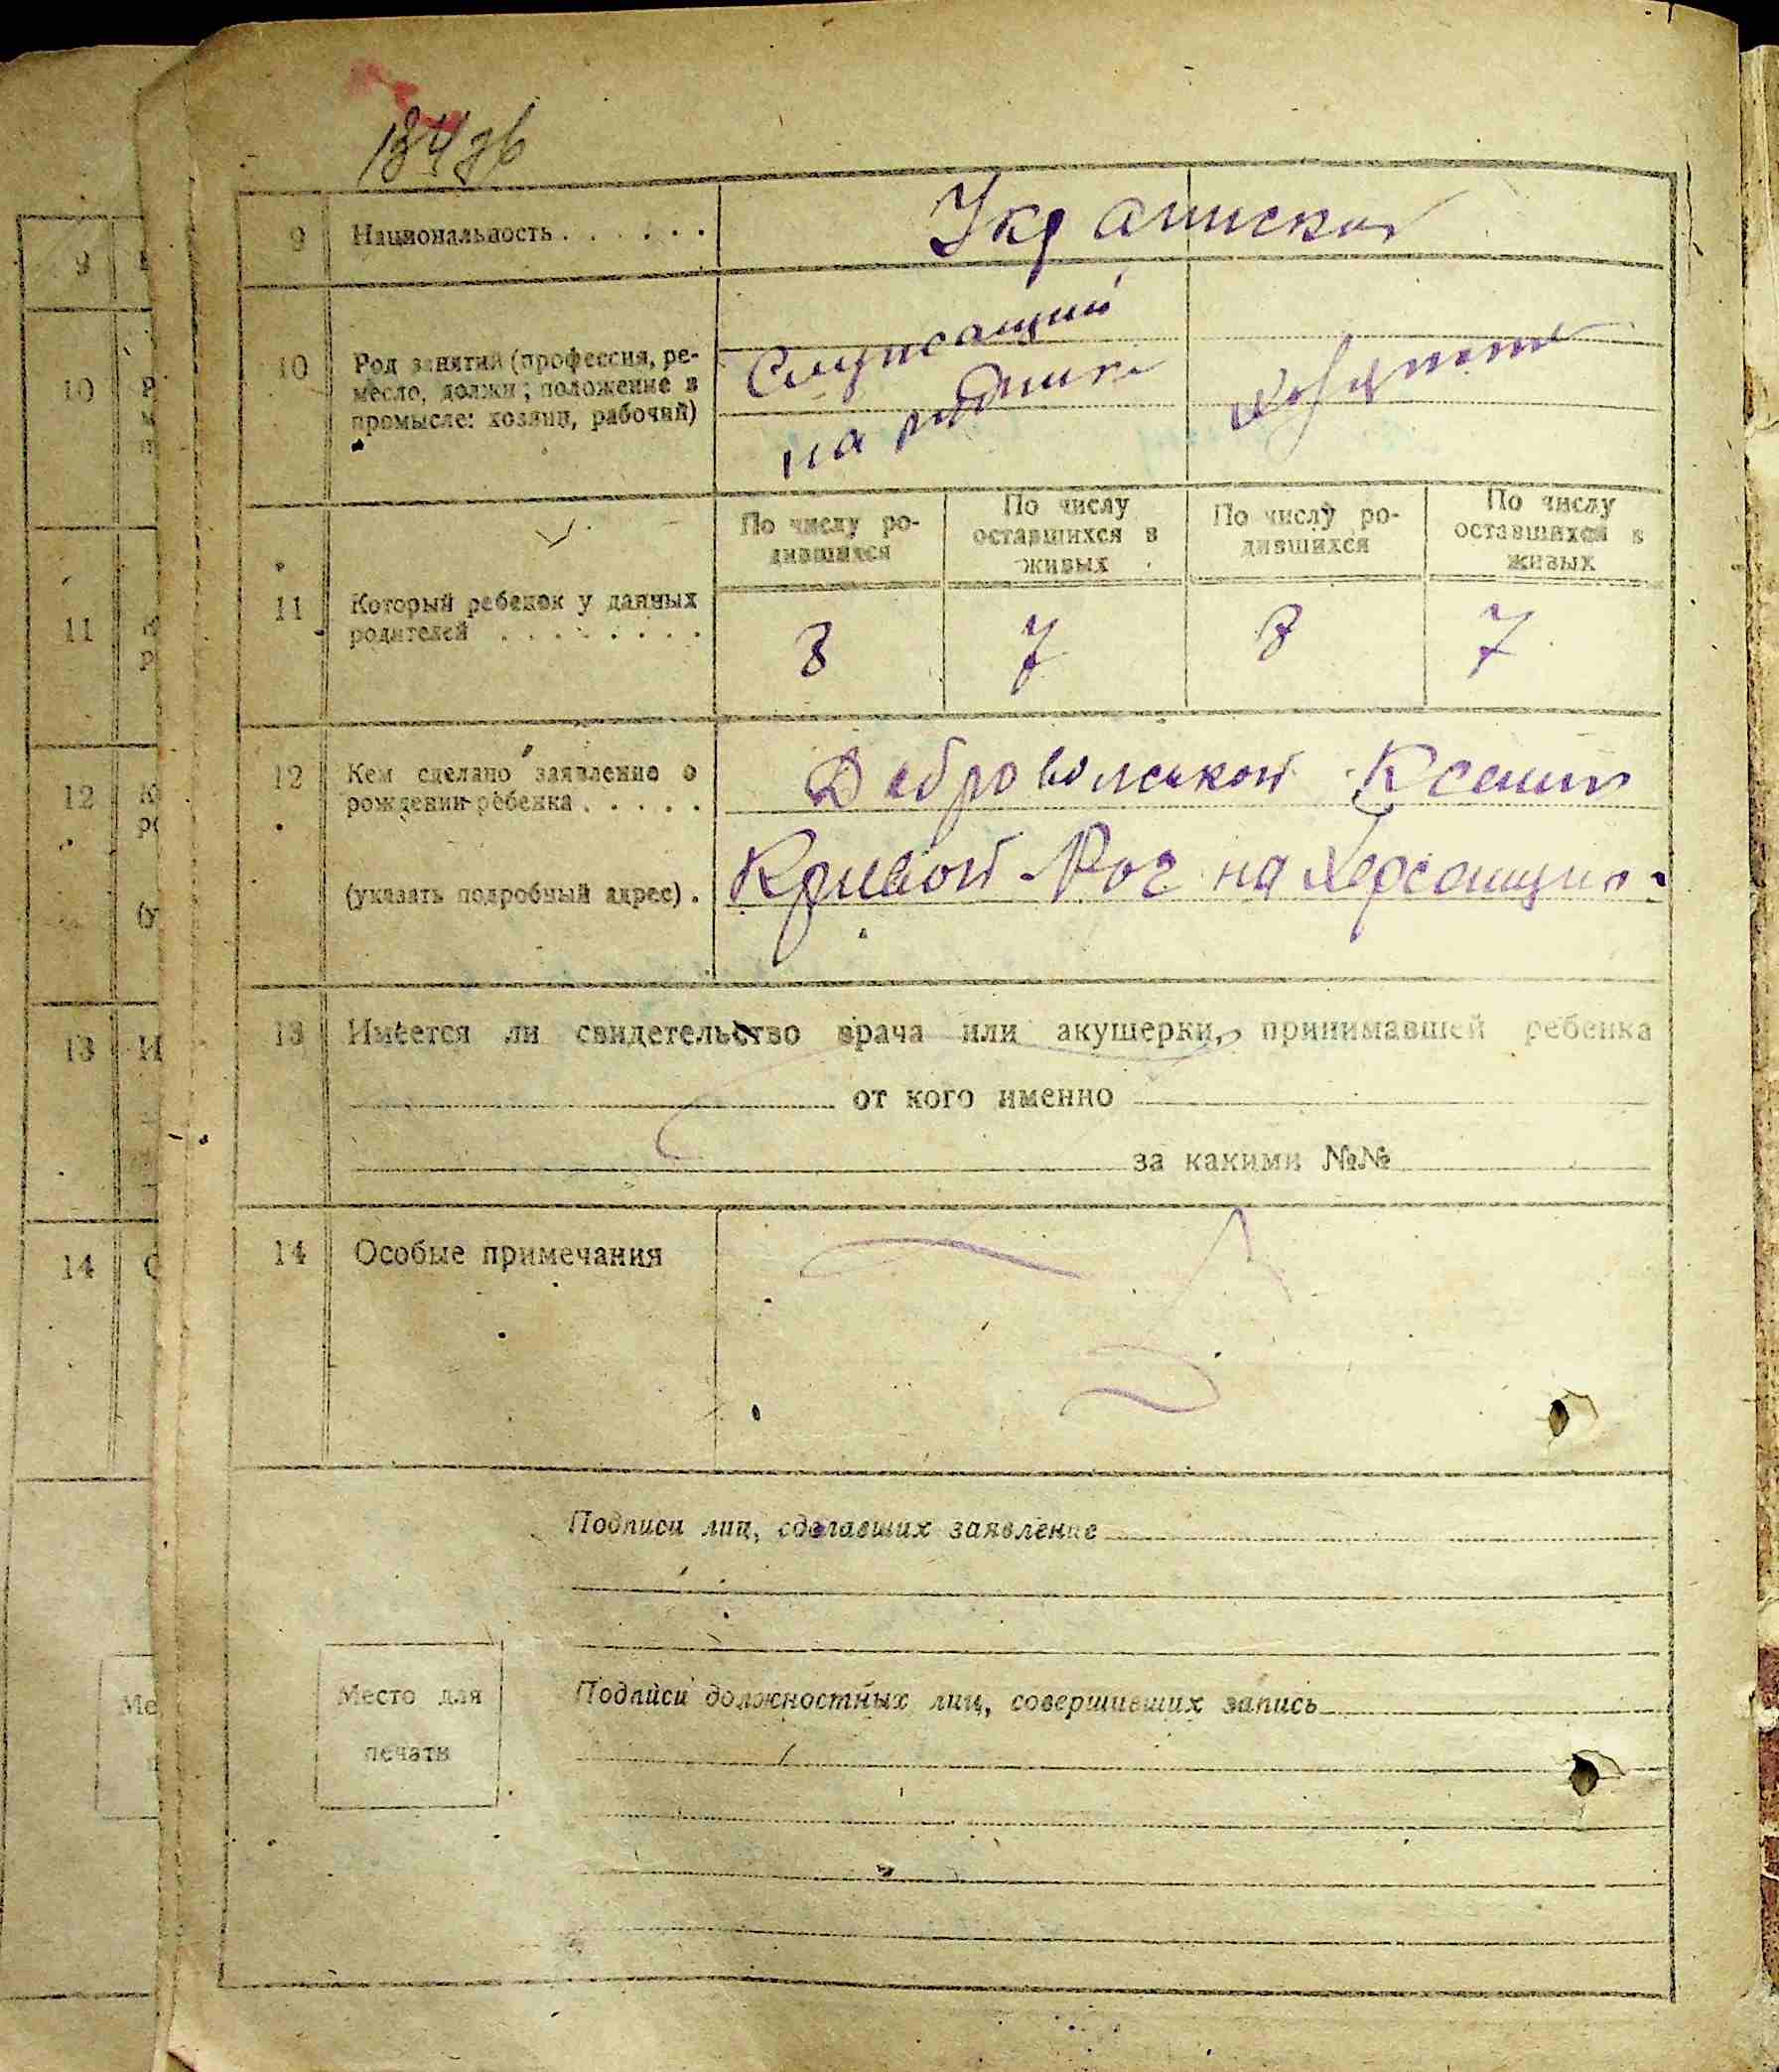 184 зв
9 Национальность . . . . . . Украинская
10 Род занятий (профессия, ре-
месло, должн; положение в
промысле: хозяин, рабочий)
Служащий
на руднике
По числу ро-
дившихся
По числу
оставшихся в
живых
По числу ро-
дившихся
По числу
оставшихся в
живых
11 Который ребенок у данных
родителей . . . . . . . .
8 7 8 7
12 Кем сделано заявление о
рождении ребенка . . . . .
Добровольской Ксении
(указать подробный адрес) .
Кривой Рог на Херсонщине
13 Имеется ли свидетельство врача или акушерки, принимавшей ребенка
от кого именно
за какими №№
14 Особые примечания
Подписи лиц, сделавших заявление
Место для
печати
Подписи должностных лиц, совершивших запись
9
10
11
12
13
14